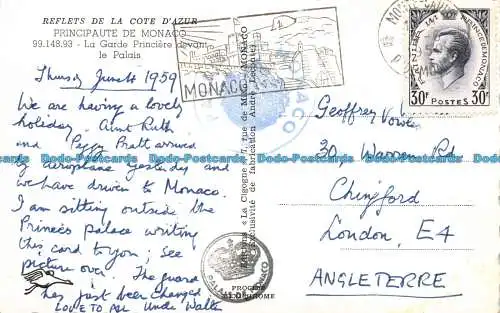 REFLETS DE LA COTE D'AZUR
PRINCIPAUTE DE MONACO
99.148.93 - La Garde Princière devant
le Palais
Thursday June 4 1959
We are having a lovely
holiday. Aunt Ruth
and Peggy Pratt arrived
by aeroplane yesterday and
we have driven to Monaco.
I am sitting outside the
Princes palace writing
this card to you; see
picture over. The guard
has just been changed
LOVE TO ALL Uncle Walter
MONACO
MONACO
Editions « La Cigogne »
Exclusivité de fabrication André
PALAIS DE MONACO
30F POSTES 30F
Geoffrey
30 Warren Rd
Chingford
London, E4
ANGLETERRE
Dodo-Postcards Dodo-Postcards Dodo-Postcards Dodo-Postcards